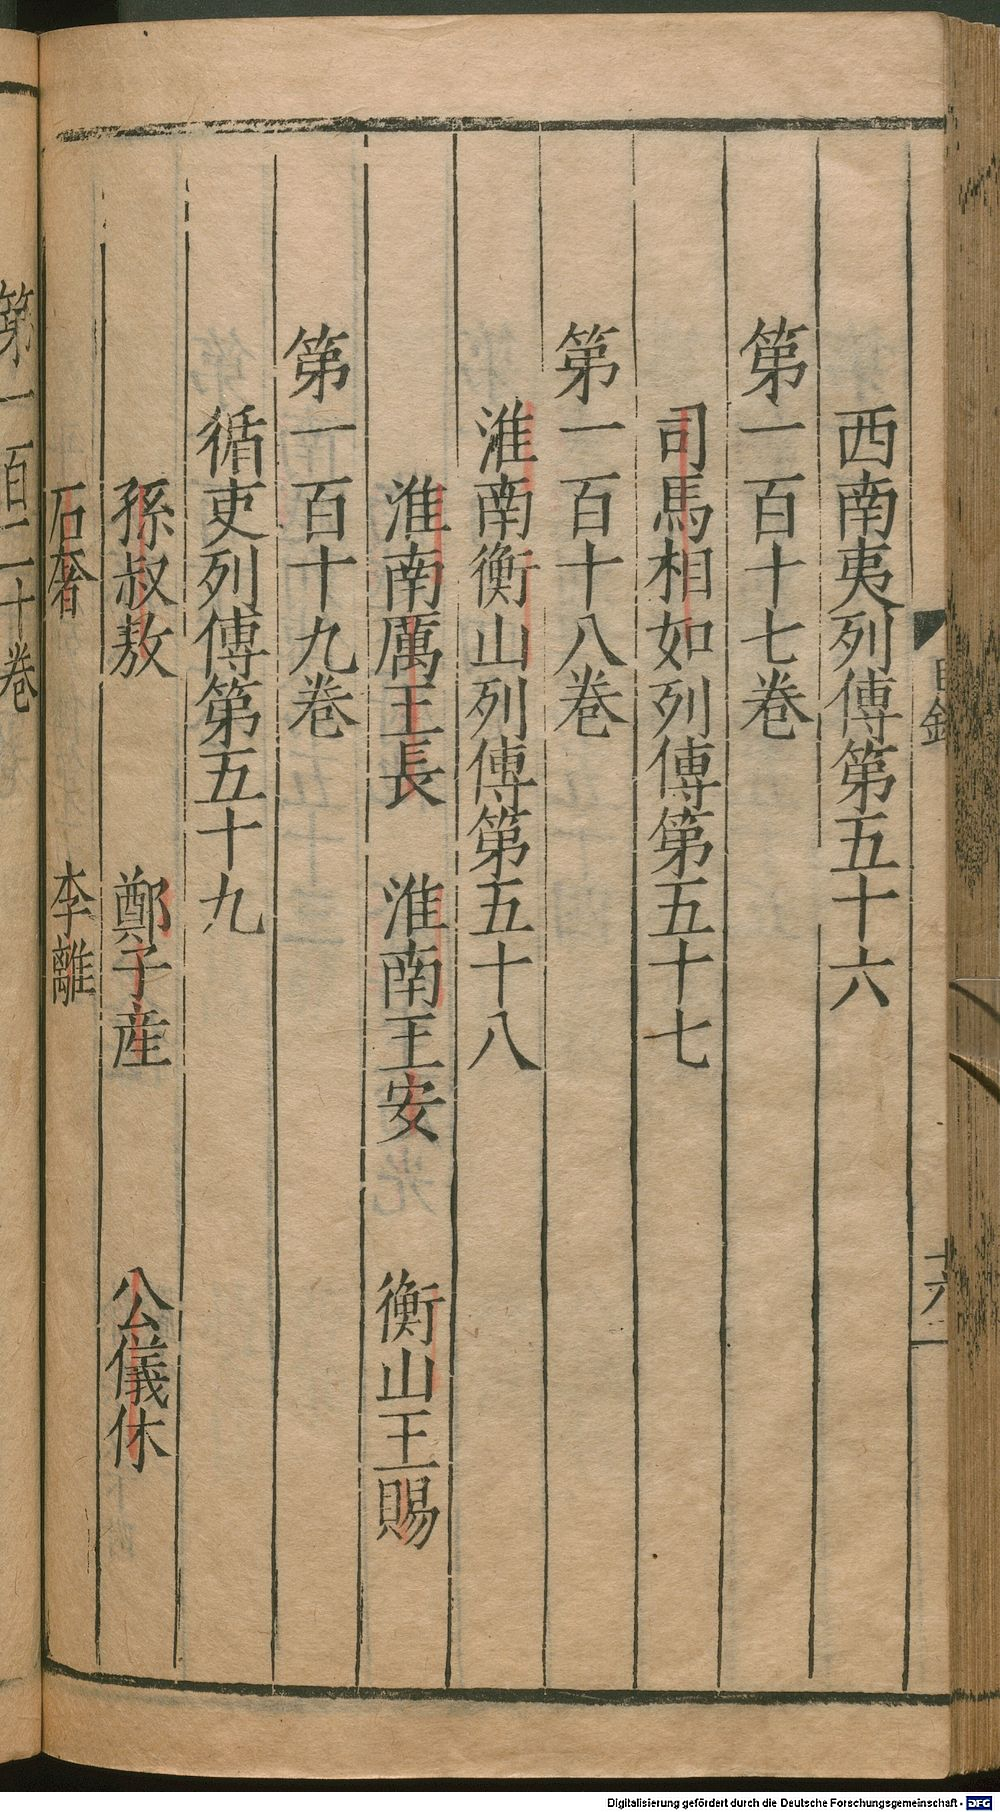 目錄
十六
西南夷列傳第五十六
第一百十七卷
司馬相如列傳第五十七
第一百十八卷
淮南衡山列傳第五十八
淮南厲王長 淮南王安 衡山王賜
第一百十九卷
循吏列傳第五十九
孫叔敖 鄭子産 公儀休
石奢 李離
第一百二十卷
Digitalisierung gefördert durch die Deutsche Forschungsgemeinschaft - DFG